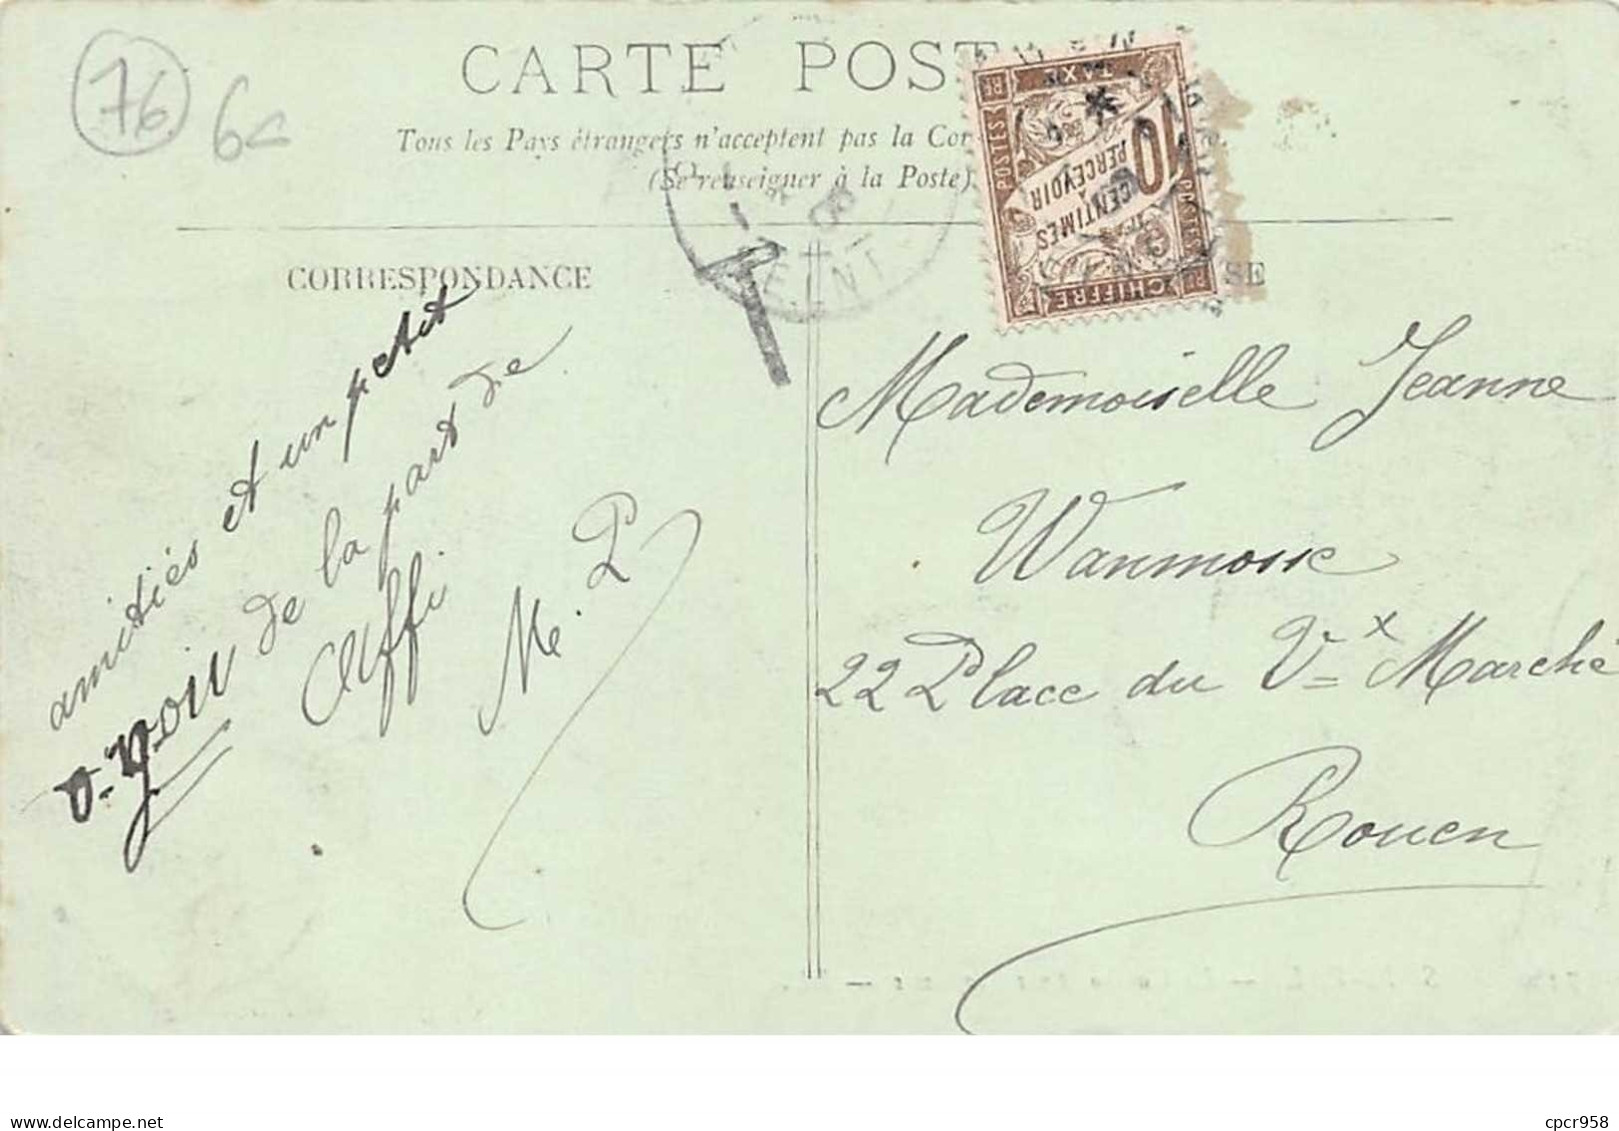 76
6
CARTE POST
Tous les Pays étrangers n'acceptent pas la Cor
(Se renseigner à la Poste)
TAXE
POSTES
10
CENTIMES
À
PERCEVOIR
CHIFFRE
T
CORRESPONDANCE
SE
amitiés et un petit
de la part de
M. P
Mademoiselle Jeanne
22 Place du Vx Marché
Rouen
www.delcampe.net
cpcr958